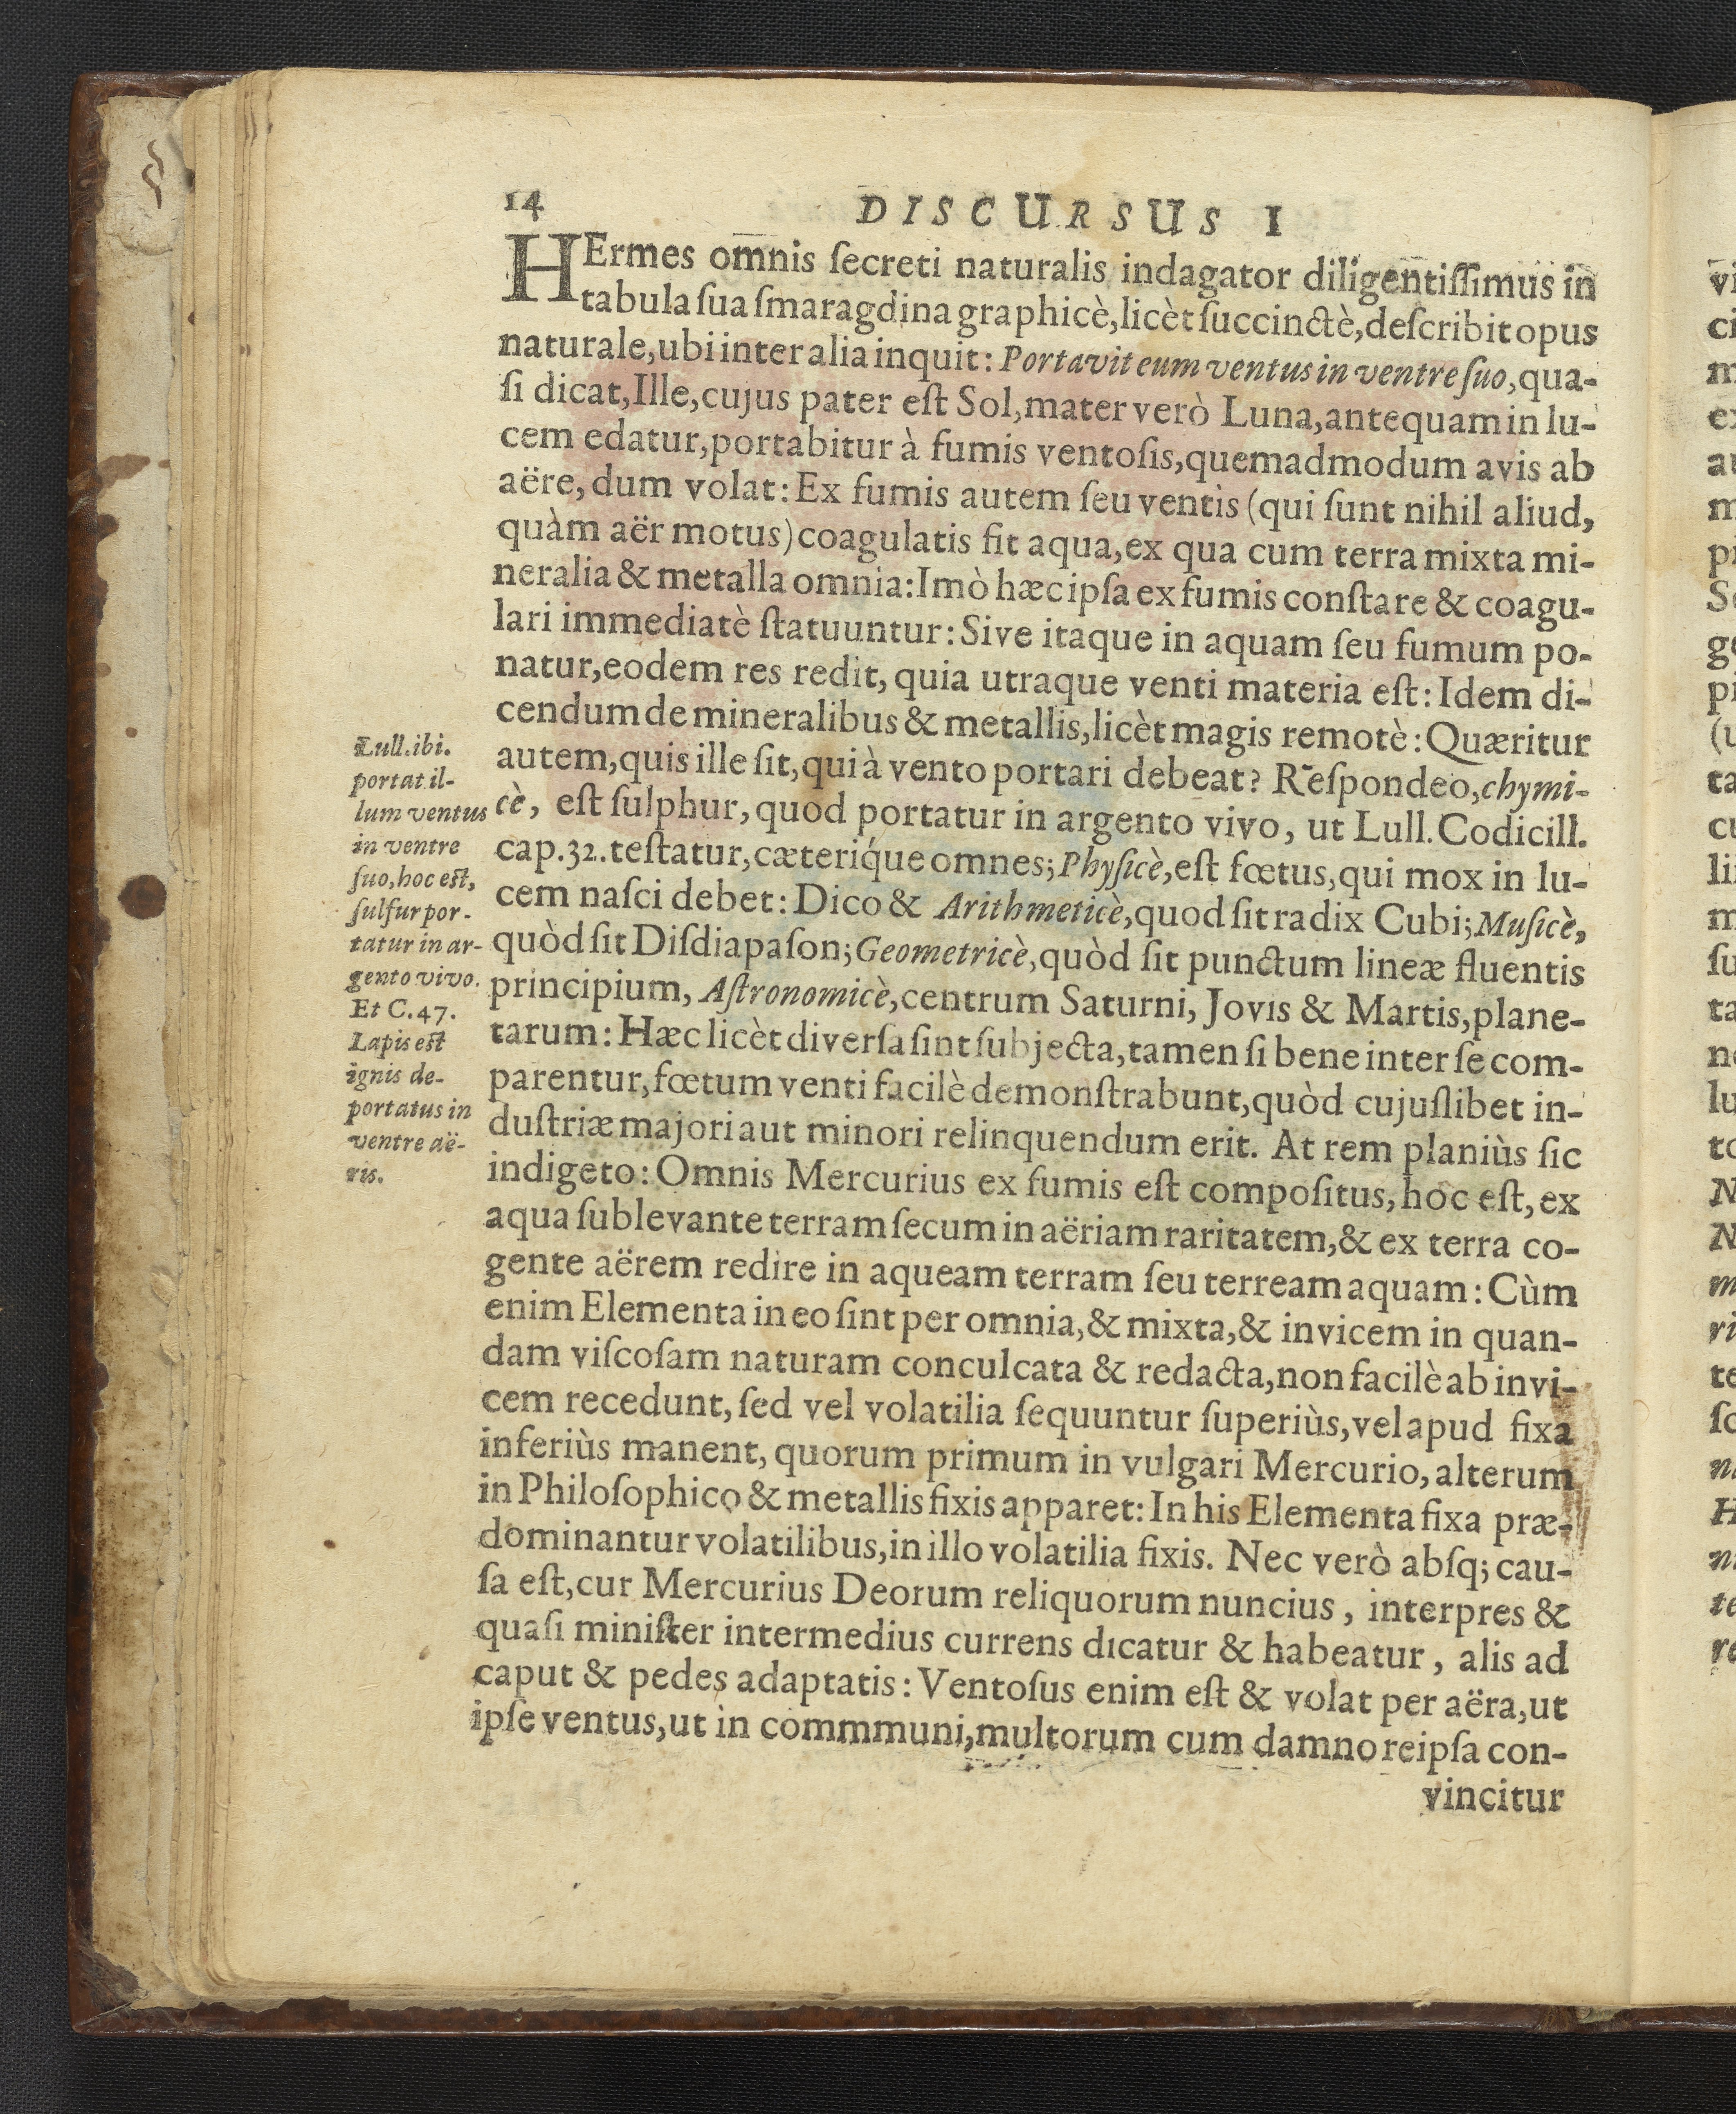 14 DISCURSUS I
HErmes omnis ſecreti naturalis indagator diligentiſſimus in
tabula ſua ſmaragdina graphicè, licèt ſuccinctè, deſcribit opus
naturale, ubi inter alia inquit: Portavit eum ventus in ventre ſuo, qua-
ſi dicat, Ille, cujus pater eſt Sol, mater verò Luna, antequam in lu-
cem edatur, portabitur à fumis ventoſis, quemadmodum avis ab
aëre, dum volat: Ex fumis autem ſeu ventis (qui ſunt nihil aliud,
quàm aër motus) coagulatis fit aqua, ex qua cum terra mixta mi-
neralia & metalla omnia: Imò hæc ipſa ex fumis conſtare & coagu-
lari immediatè ſtatuuntur: Sive itaque in aquam ſeu fumum po-
natur, eodem res redit, quia utraque venti materia eſt: Idem di-
cendum de mineralibus & metallis, licèt magis remotè: Quæritur
autem, quis ille ſit, qui à vento portari debeat? Reſpondeo, chymi-
cè, eſt ſulphur, quod portatur in argento vivo, ut Lull. Codicill.
cap. 32. teſtatur, cæteriq́ue omnes; Phyſicè, eſt fœtus, qui mox in lu-
cem naſci debet: Dico & Arithmeticè, quod ſit radix Cubi; Muſicè,
quòd ſit Diſdiapaſon; Geometricè, quòd ſit punctum lineæ fluentis
principium, Aſtronomicè, centrum Saturni, Jovis & Martis, plane-
tarum: Hæc licèt diverſa ſint ſubjecta, tamen ſi bene inter ſe com-
parentur, fœtum venti facilè demonſtrabunt, quòd cujuſlibet in-
duſtriæ majori aut minori relinquendum erit. At rem planiùs ſic
indigeto: Omnis Mercurius ex fumis eſt compoſitus, hoc eſt, ex
aqua ſublevante terram ſecum in aëriam raritatem, & ex terra co-
gente aërem redire in aqueam terram ſeu terream aquam: Cùm
enim Elementa in eo ſint per omnia, & mixta, & invicem in quan-
dam viſcoſam naturam conculcata & redacta, non facilè ab invi-
cem recedunt, ſed vel volatilia ſequuntur ſuperiùs, vel apud fixa
inferiùs manent, quorum primum in vulgari Mercurio, alterum
in Philoſophico & metallis fixis apparet: In his Elementa fixa præ-
dominantur volatilibus, in illo volatilia fixis. Nec verò abſq; cau-
ſa eſt, cur Mercurius Deorum reliquorum nuncius, interpres &
quaſi miniſter intermedius currens dicatur & habeatur, alis ad
caput & pedes adaptatis: Ventoſus enim eſt & volat per aëra, ut
ipſe ventus, ut in commmuni, multorum cum damno reipſa con-
vincitur
Lull. ibi.
portat il-
lum ventus
in ventre
ſuo, hoc eſt,
ſulfur por-
tatur in ar-
gento vivo.
Et C. 47.
Lapis eſt
ignis de-
portatus in
ventre aë-
ris.